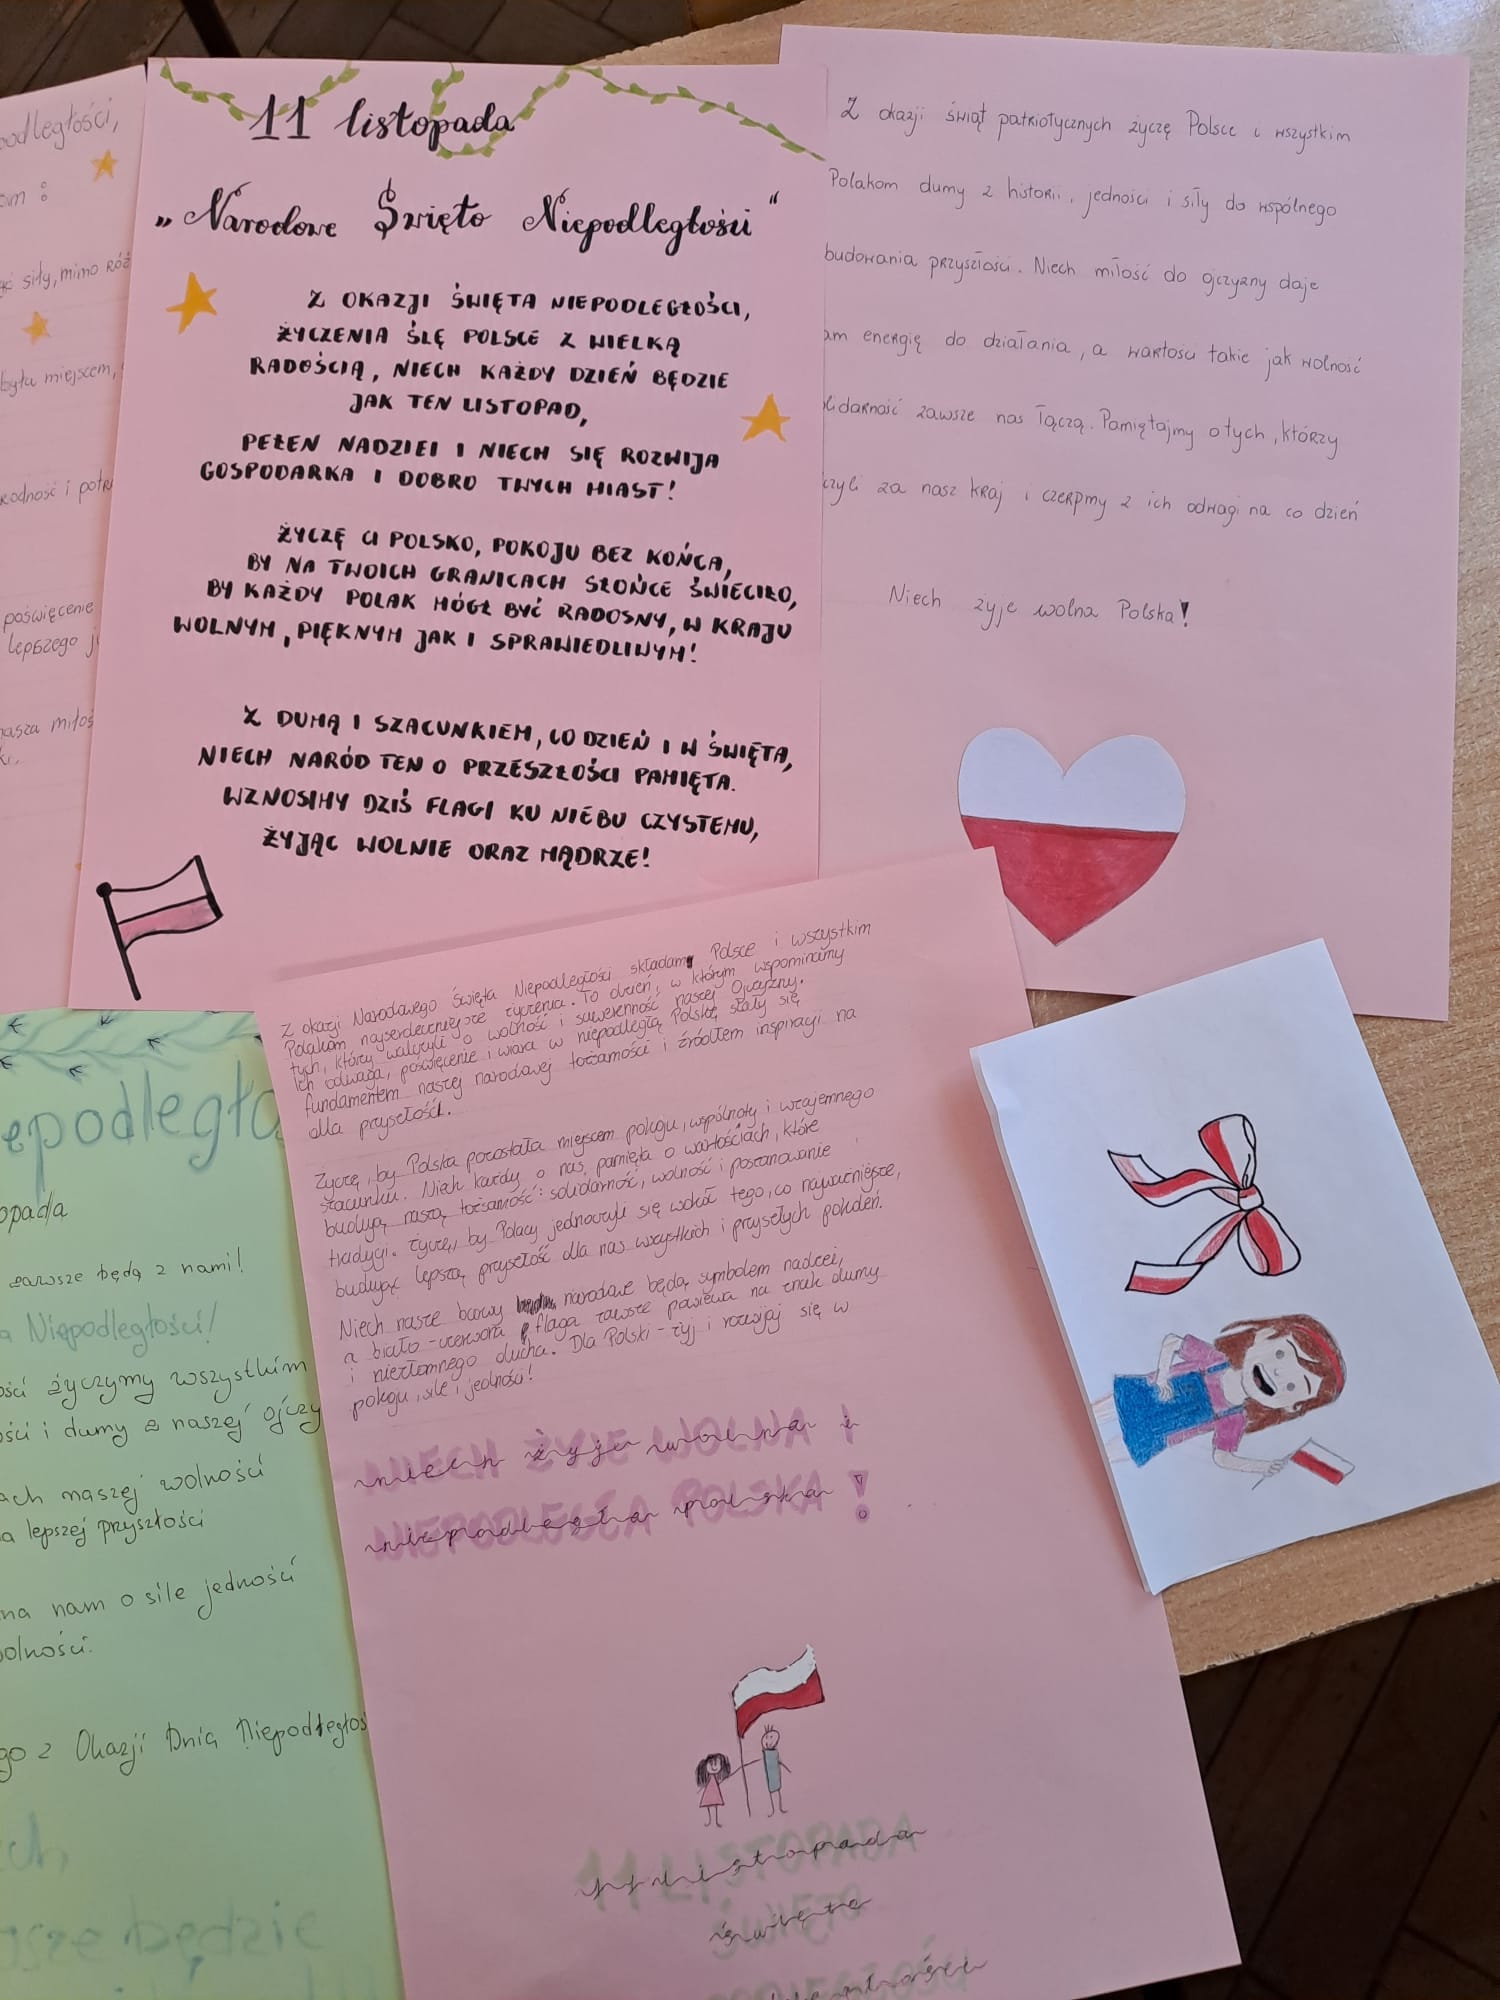 11 listopada
„Narodowe Święto Niepodległości"
Z OKAZJI ŚWIĘTA NIEPODLEGŁOŚCI,
ŻYCZENIA ŚLĘ POLSCE Z WIELKĄ
RADOŚCIĄ, NIECH KAŻDY DZIEŃ BĘDZIE
JAK TEN LISTOPAD,
PEŁEN NADZIEI I NIECH SIĘ ROZWIJA
GOSPODARKA I DOBRO TWYCH MIAST!
ŻYCZĘ CI POLSKO, POKOJU BEZ KOŃCA,
BY NA TWOICH GRANICACH SŁOŃCE ŚWIECIŁO,
BY KAŻDY POLAK MÓGŁ BYĆ RADOSNY, W KRAJU
WOLNYM, PIĘKNYM JAK I SPRAWIEDLIWYM!
Z DUMĄ I SZACUNKIEM, CO DZIEŃ I W ŚWIĘTA,
NIECH NARÓD TEN O PRZESZŁOŚCI PAMIĘTA.
WZNOSIMY DZIŚ FLAGI KU NIEBU CZYSTEMU,
ŻYJĄC WOLNIE ORAZ MĄDRZE!
Z okazji świąt patriotycznych życzę Polsce i wszystkim
Polakom dumy z historii, jedności i siły do wspólnego
budowania przyszłości. Niech miłość do ojczyzny daje
am energię do działania, a wartości takie jak wolność
lidarność zawsze nas łączą. Pamiętajmy o tych, którzy
czyli za nasz kraj i czerpmy z ich odwagi na co dzień
Niech żyje wolna Polska!
podległości,
om:
siły, mimo róż
była miejscem,
rodność i potr
poświęcenie
lepszego j
nasza miłoś
ki.
Z okazji Narodowego Święta Niepodległości składam Polsce i wszystkim
Polakom najserdeczniejsze życzenia. To dzień, w którym wspominamy
tych, którzy walczyli o wolność i suwerenność naszej Ojczyzny.
Ich odwaga, poświęcenie i wiara w niepodległą Polskę stały się
fundamentem naszej narodowej tożsamości i źródłem inspiracji na
dla przyszłości.
Życzę, by Polska pozostała miejscem pokoju, wspólnoty i wzajemnego
szacunku. Niech każdy o nas pamięta o wartościach, które
budują naszą tożsamość: solidarność, wolność i poszanowanie
tradycji. Życzę, by Polacy jednoczyli się wokół tego, co najważniejsze,
budując lepszą przyszłość dla nas wszystkich i przyszłych pokoleń.
Niech nasze barwy narodowe będą symbolem nadziei,
a biało-czerwona flaga zawsze powiewa na znak dumy
i niezłomnego ducha. Dla Polski - żyj i rozwijaj się w
pokoju, sile i jedności!
NIECH ŻYJE WOLNA I
NIEPODLEGŁA POLSKA!
11 LISTOPADA
ŚWIĘTO
epodległo
opada
zawsze będą z nami!
a Niepodległości!
ości życzymy wszystkim
ości i dumy z naszej ojczy
ach naszej wolności
a lepszej przyszłości
na nam o sile jedności
olności.
go z Okazji Dnia Niepodległoś
ch
sze będzie